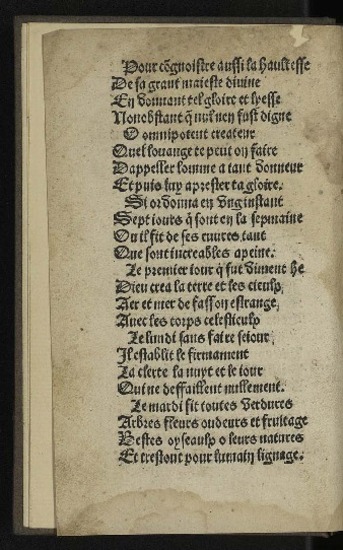 Pour cõgnoistre aussi la haultesse
De sa grant maieste divine
En donnant tel gloire et lyesse
Nonobstant q̃ nul nen fust digne
O omnipotent createur
Quel louange te peut on faire
Dappeller lomme a tant donneur
Et puis luy aprester ta gloire.
Si ordonna en vng instant
Sept iours q̃ sont en la sepmaine
Ou il fit de ses euures tant
Que sont increables a peine.
Le premier iour q̃ fut diment he
Dieu crea la terre et les cieulx,
Aer et mer de fasson estrange,
Auec les corps celestieulx
Le lundi sans faire seiour,
Il establit le firmament
La clerte la nuyt et le iour
Qui ne deffaillent nullement.
Le mardi fit toutes verdures
Arbres fleurs oudeurs et fruitage
Bestes oyseaulx o leurs natures
Et trestout pour lumain lignage.